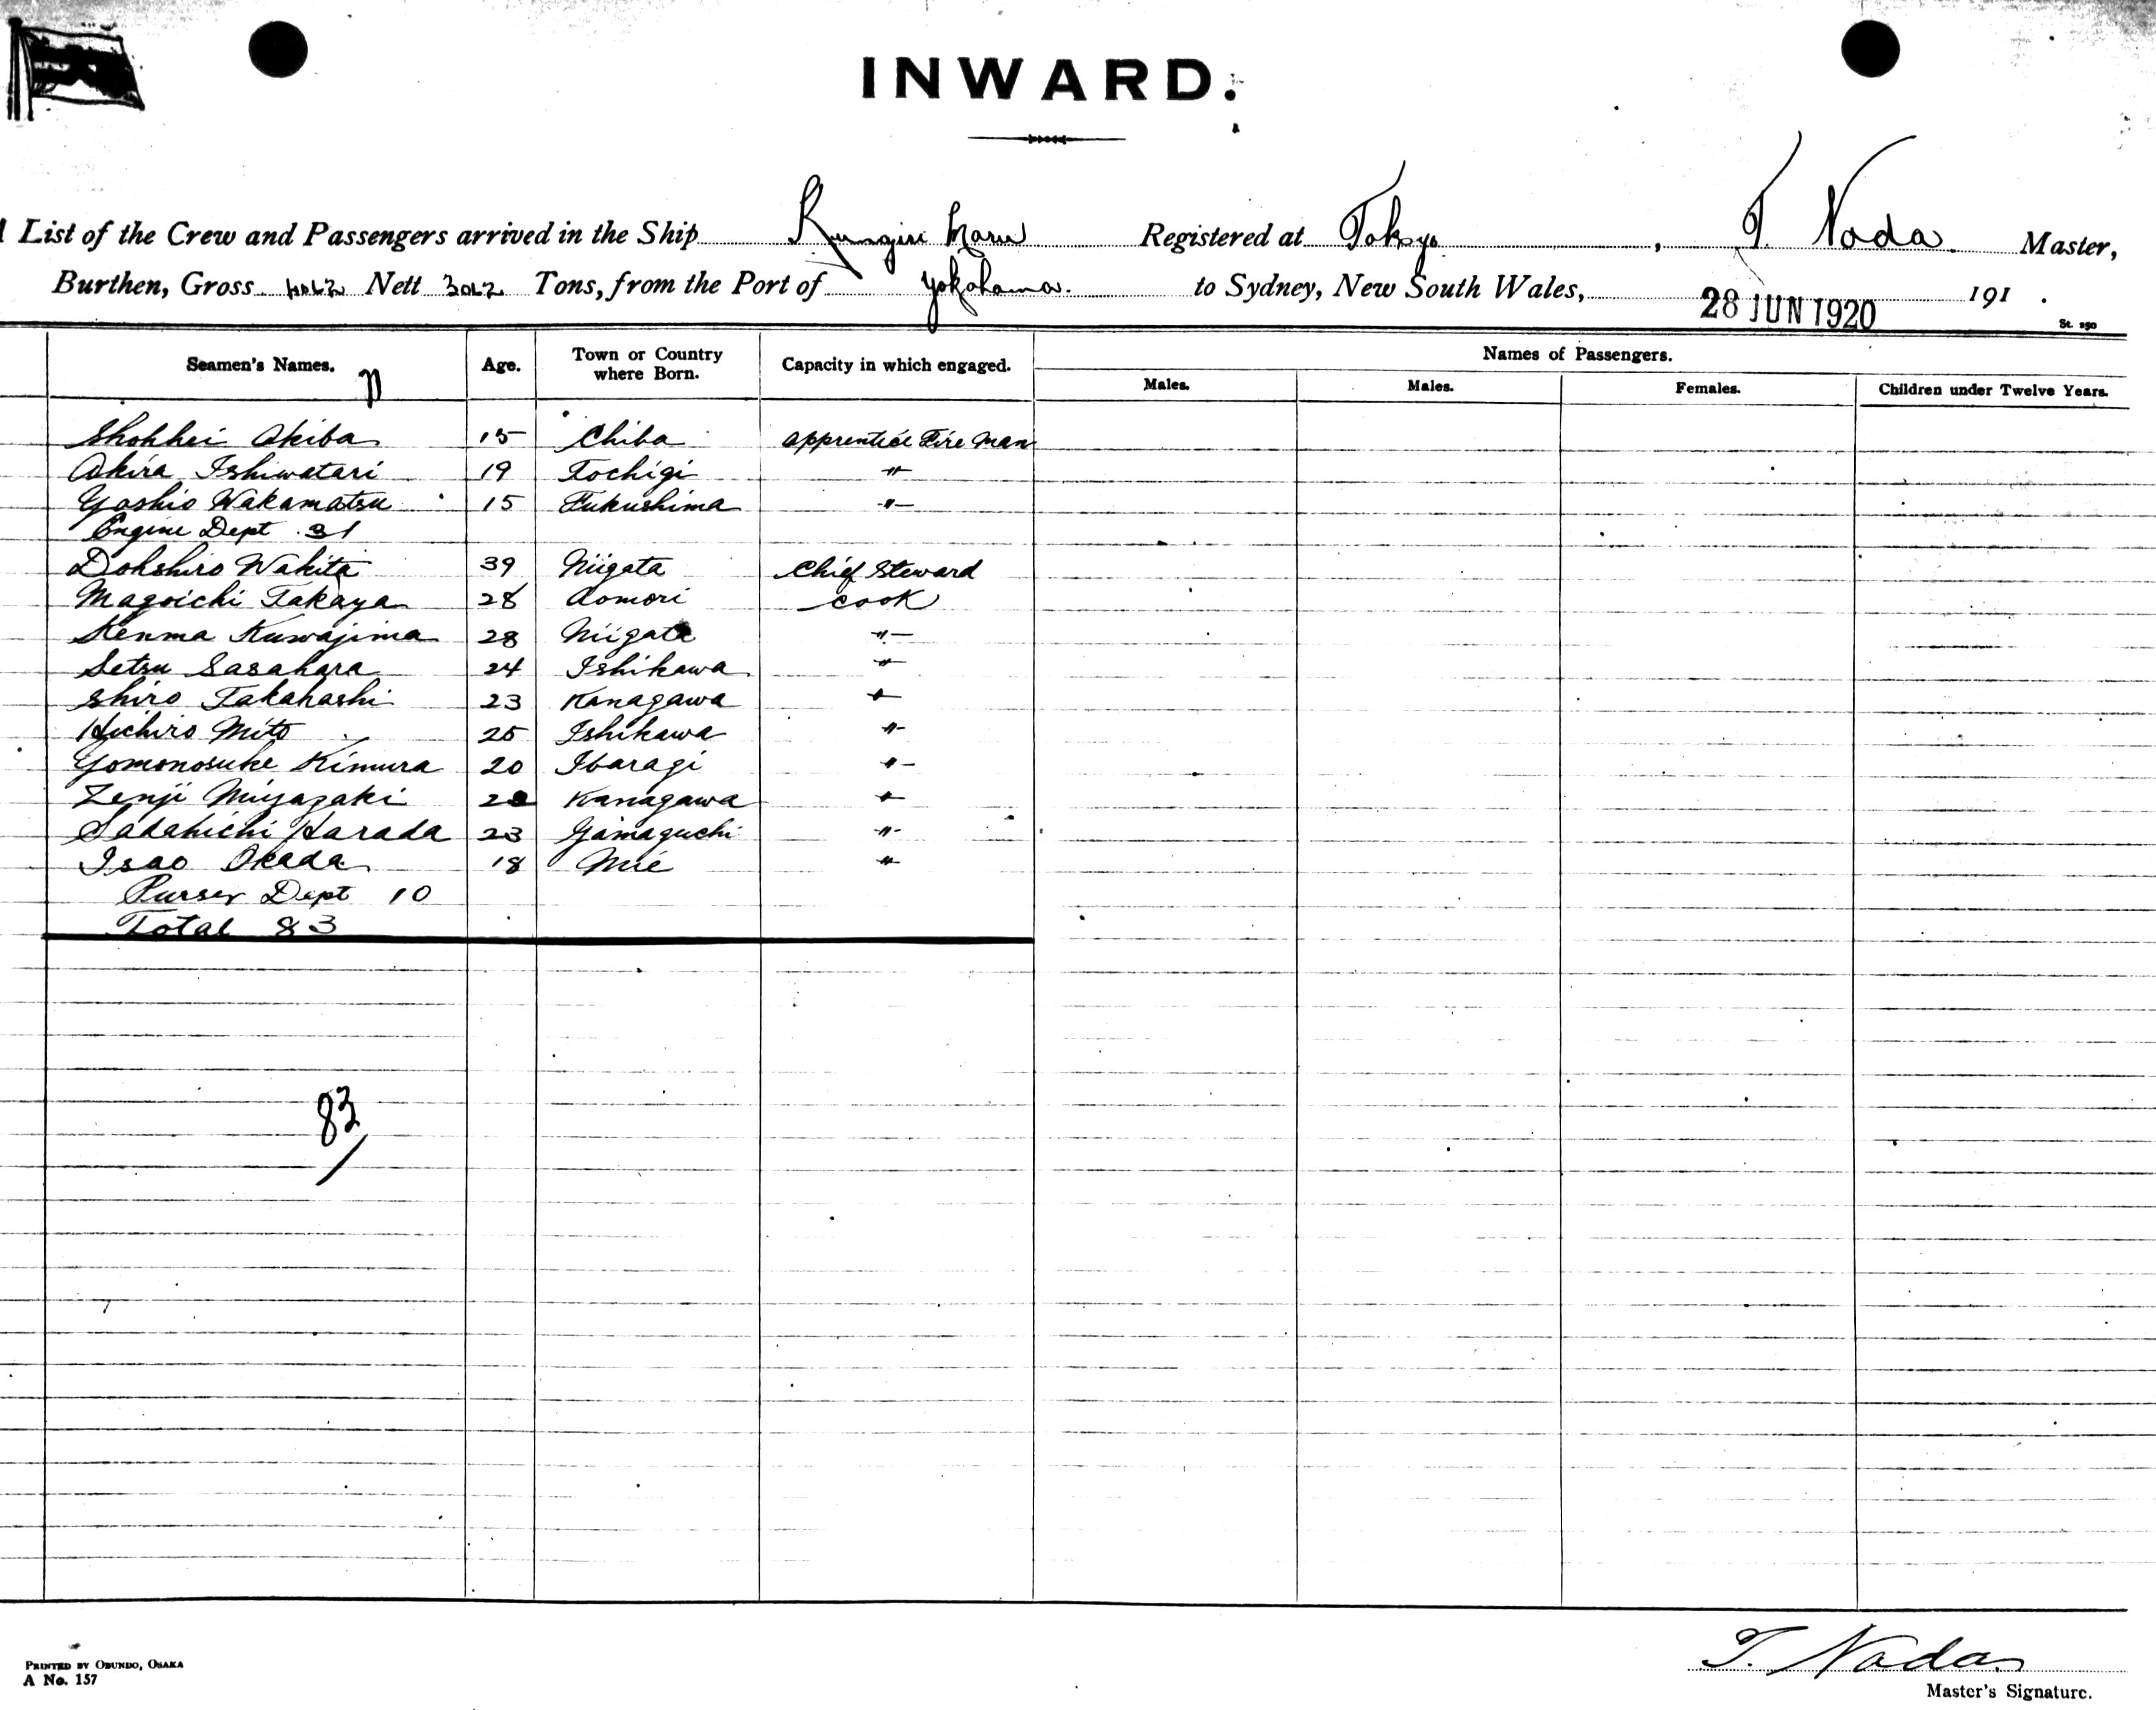 INWARD.
List of the Crew and Passengers arrived in the Ship Maru Registered at Tokyo, T. Noda Master,
Burthen, Gross Nett Tons, from the Port of Yokohama. to Sydney, New South Wales, 28 JUN 1920 191 .
St. 250
Seamen's Names. Age. Town or Country where Born. Capacity in which engaged. Names of Passengers.
Males. Males. Females. Children under Twelve Years.
Shohhei Akiba 15 Chiba apprentice Fire Man
Akira Ishiwatari 19 Tochigi "
Yoshio Wakamatsu 15 Fukushima "
Engine Dept 31
Dohshiro Wakita 39 Niigata Chief Steward
Magoichi Takaya 28 Aomori Cook
Kenma Kuwajima 28 Niigata "
Setsu Sasahara 24 Ishikawa "
Shiro Takahashi 23 Kanagawa "
Mito 25 Ishikawa "
Yomonosuke Kimura 20 Ibaragi "
Zenji Miyazaki Kanagawa "
Sadahichi Harada 23 Yamaguchi "
Isao Okada 18 Mie "
Purser Dept 10
Total 83
83
PRINTED BY OBUNDO, OSAKA
A No. 157
T. Noda
Master's Signature.